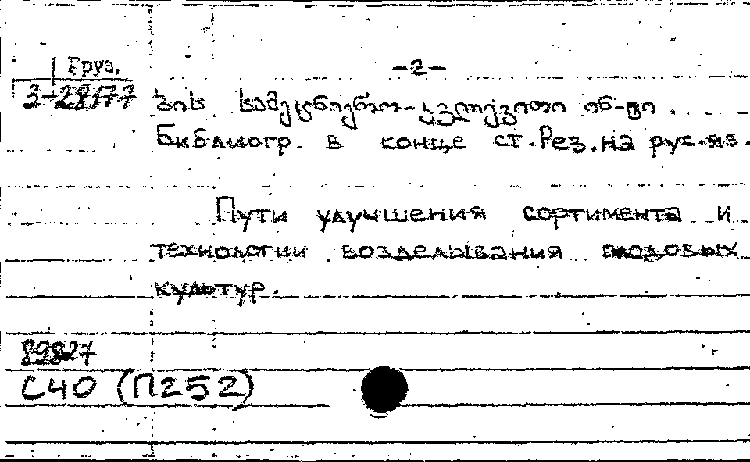 Груз. -2-
3-28177 ბის სამეცნიერო-კვლევითი ინ-ტი.
Библиогр. в конце ст. Рез. на рус. яз.
Пути улучшения сортимента и
технологии возделывания плодовых
культур.
89827
С40 (П252)